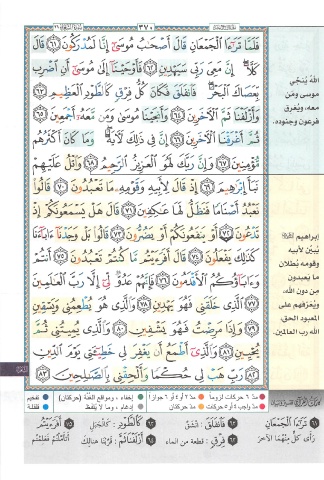 ٣٧٠
فَلَمَّا تَرَٰٓءَا ٱلْجَمْعَانِ قَالَ أَصْحَٰبُ مُوسَىٰٓ إِنَّا لَمُدْرَكُونَ ٦١ قَالَ
كَلَّآ إِنَّ مَعِىَ رَبِّى سَيَهْدِينِ ٦٢ فَأَوْحَيْنَآ إِلَىٰ مُوسَىٰٓ أَنِ ٱضْرِب
بِّعَصَاكَ ٱلْبَحْرَ فَٱنفَلَقَ فَكَانَ كُلُّ فِرْقٍ كَٱلطَّوْدِ ٱلْعَظِيمِ ٦٣
وَأَزْلَفْنَا ثَمَّ ٱلْءَاخَرِينَ ٦٤ وَأَنجَيْنَا مُوسَىٰ وَمَن مَّعَهُۥٓ أَجْمَعِينَ ٦٥
ثُمَّ أَغْرَقْنَا ٱلْءَاخَرِينَ ٦٦ إِنَّ فِى ذَٰلِكَ لَءَايَةً وَمَا كَانَ أَكْثَرُهُم
مُّؤْمِنِينَ ٦٧ وَإِنَّ رَبَّكَ لَهُوَ ٱلْعَزِيزُ ٱلرَّحِيمُ ٦٨ وَٱتْلُ عَلَيْهِمْ
نَبَأَ إِبْرَٰهِيمَ ٦٩ إِذْ قَالَ لِأَبِيهِ وَقَوْمِهِۦ مَا تَعْبُدُونَ ٧٠ قَالُوا۟
نَعْبُدُ أَصْنَامًا فَنَظَلُّ لَهَا عَٰكِفِينَ ٧١ قَالَ هَلْ يَسْمَعُونَكُمْ إِذْ
تَدْعُونَ ٧٢ أَوْ يَنفَعُونَكُمْ أَوْ يَضُرُّونَ ٧٣ قَالُوا۟ بَلْ وَجَدْنَآ ءَابَآءَنَا
كَذَٰلِكَ يَفْعَلُونَ ٧٤ قَالَ أَفَرَءَيْتُم مَّا كُنتُمْ تَعْبُدُونَ ٧٥ أَنتُمْ
وَءَابَآؤُكُمُ ٱلْأَقْدَمُونَ ٧٦ فَإِنَّهُمْ عَدُوٌّ لِّىٓ إِلَّا رَبَّ ٱلْعَٰلَمِينَ
٧٧ ٱلَّذِى خَلَقَنِى فَهُوَ يَهْدِينِ ٧٨ وَٱلَّذِى هُوَ يُطْعِمُنِى وَيَسْقِينِ
٧٩ وَإِذَا مَرِضْتُ فَهُوَ يَشْفِينِ ٨٠ وَٱلَّذِى يُمِيتُنِى ثُمَّ
يُحْيِينِ ٨١ وَٱلَّذِىٓ أَطْمَعُ أَن يَغْفِرَ لِى خَطِيٓـَٔتِى يَوْمَ ٱلدِّينِ
٨٢ رَبِّ هَبْ لِى حُكْمًا وَأَلْحِقْنِى بِٱلصَّٰلِحِينَ ٨٣
اللهُ يُنجّي
موسى ومَن
معه، ويُغرق
فرعون وجنوده.
إبراهيم
يُبيّن لأبيه
وقومه بُطلان
ما يعبدون
من دون الله،
ويُعرّفهم على
المعبود الحق،
الله رب العالمين.
مدّ ٦ حركات لزوماً مدّ ٢ أو ٤ أو ٦ جوازاً إخفاء، ومواقع الغُنَّة (حركتان) تفخيم
مدّ واجب ٤ أو ٥ حركات مدّ حركتان إدغام، وما لا يُلفظ قلقلة
٦١ تَرَٰٓءَا ٱلْجَمْعَانِ ٦٣ فَٱنفَلَقَ: انْشَقَّ ٦٣ كَٱلطَّوْدِ: كَالْجَبَلِ ٧٥ أَفَرَءَيْتُم
رَأَى كُلٌّ مِنْهُمَا الآخَرَ ٦٣ فِرْقٍ: قطعة من الماء ٦٤ أَزْلَفْنَا ثَمَّ: قَرَّبْنَا هنالك أتأمّلتُم فعلمتُم